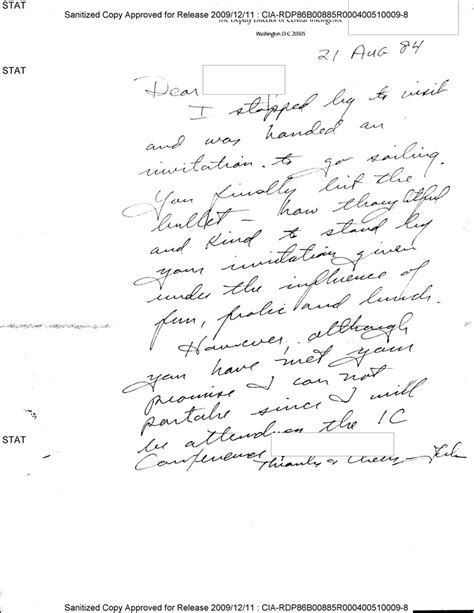 STAT
Sanitized Copy Approved for Release 2009/12/11 : CIA-RDP86B00885R000400510009-8
The Deputy Director of Central Intelligence
Washington, D.C. 20505
21 Aug 84
STAT
Dear
I stopped by to visit
and was handed an
invitation to go sailing.
You finally bit the
bullet – how thoughtful
and kind to stand by
your invitation given
under the influence of
fun, frolic and lunch.
However, although
you have met your
promise I can not
partake since I will
be attend the IC
STAT
Conference
Thanks & Cheers –
Sanitized Copy Approved for Release 2009/12/11 : CIA-RDP86B00885R000400510009-8